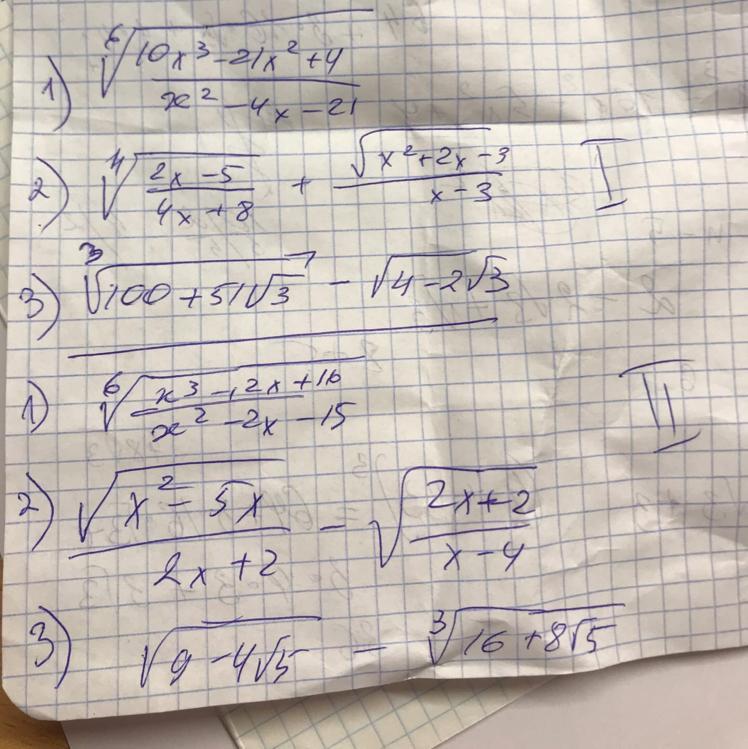 1) \sqrt[6]{\frac{10x^3-21x^2+4}{x^2-4x-21}}
2) \sqrt[4]{\frac{2x-5}{4x+8}} + \frac{\sqrt{x^2+2x-3}}{x-3} I
3) \sqrt[3]{100+51\sqrt{3}} - \sqrt{4-2\sqrt{3}}
1) \sqrt[6]{\frac{x^3-12x+16}{x^2-2x-15}} II
2) \frac{\sqrt{x^2-5x}}{2x+2} - \sqrt{\frac{2x+2}{x-4}}
3) \sqrt{9-4\sqrt{5}} - \sqrt[3]{16+8\sqrt{5}}